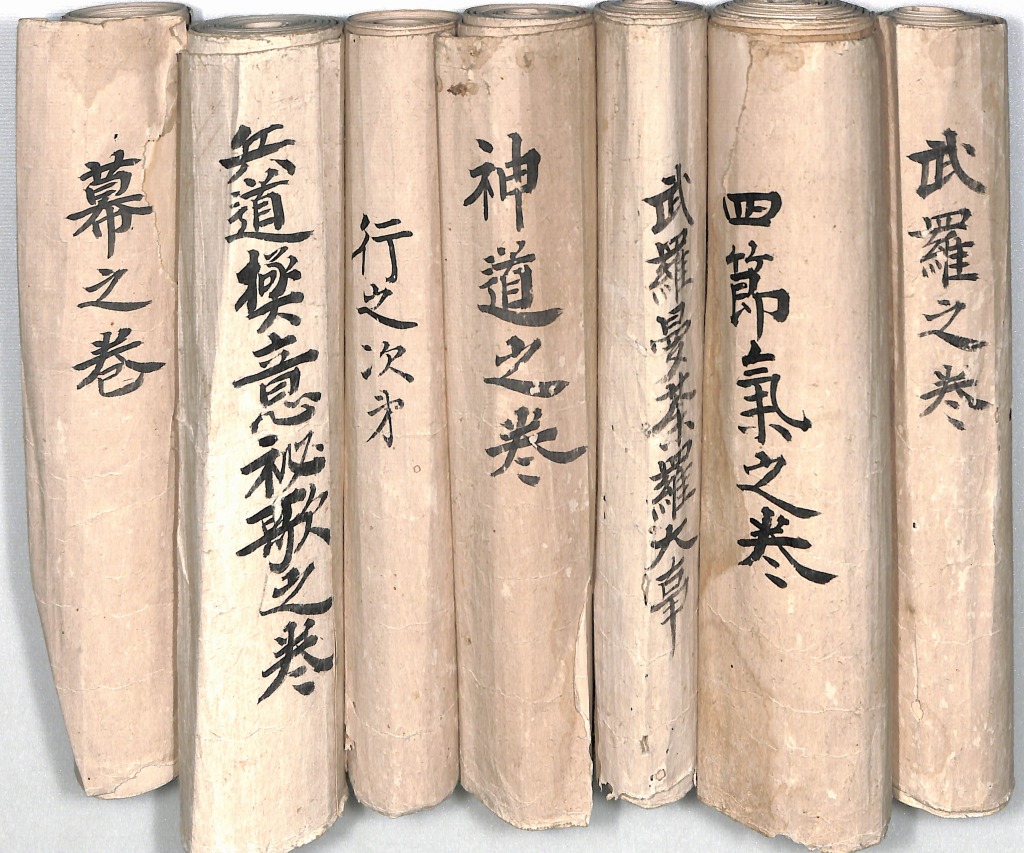 武羅之巻
四節氣之巻
武羅曼荼羅大事
神道之巻
行之次才
兵道極意秘歌之巻
幕之巻